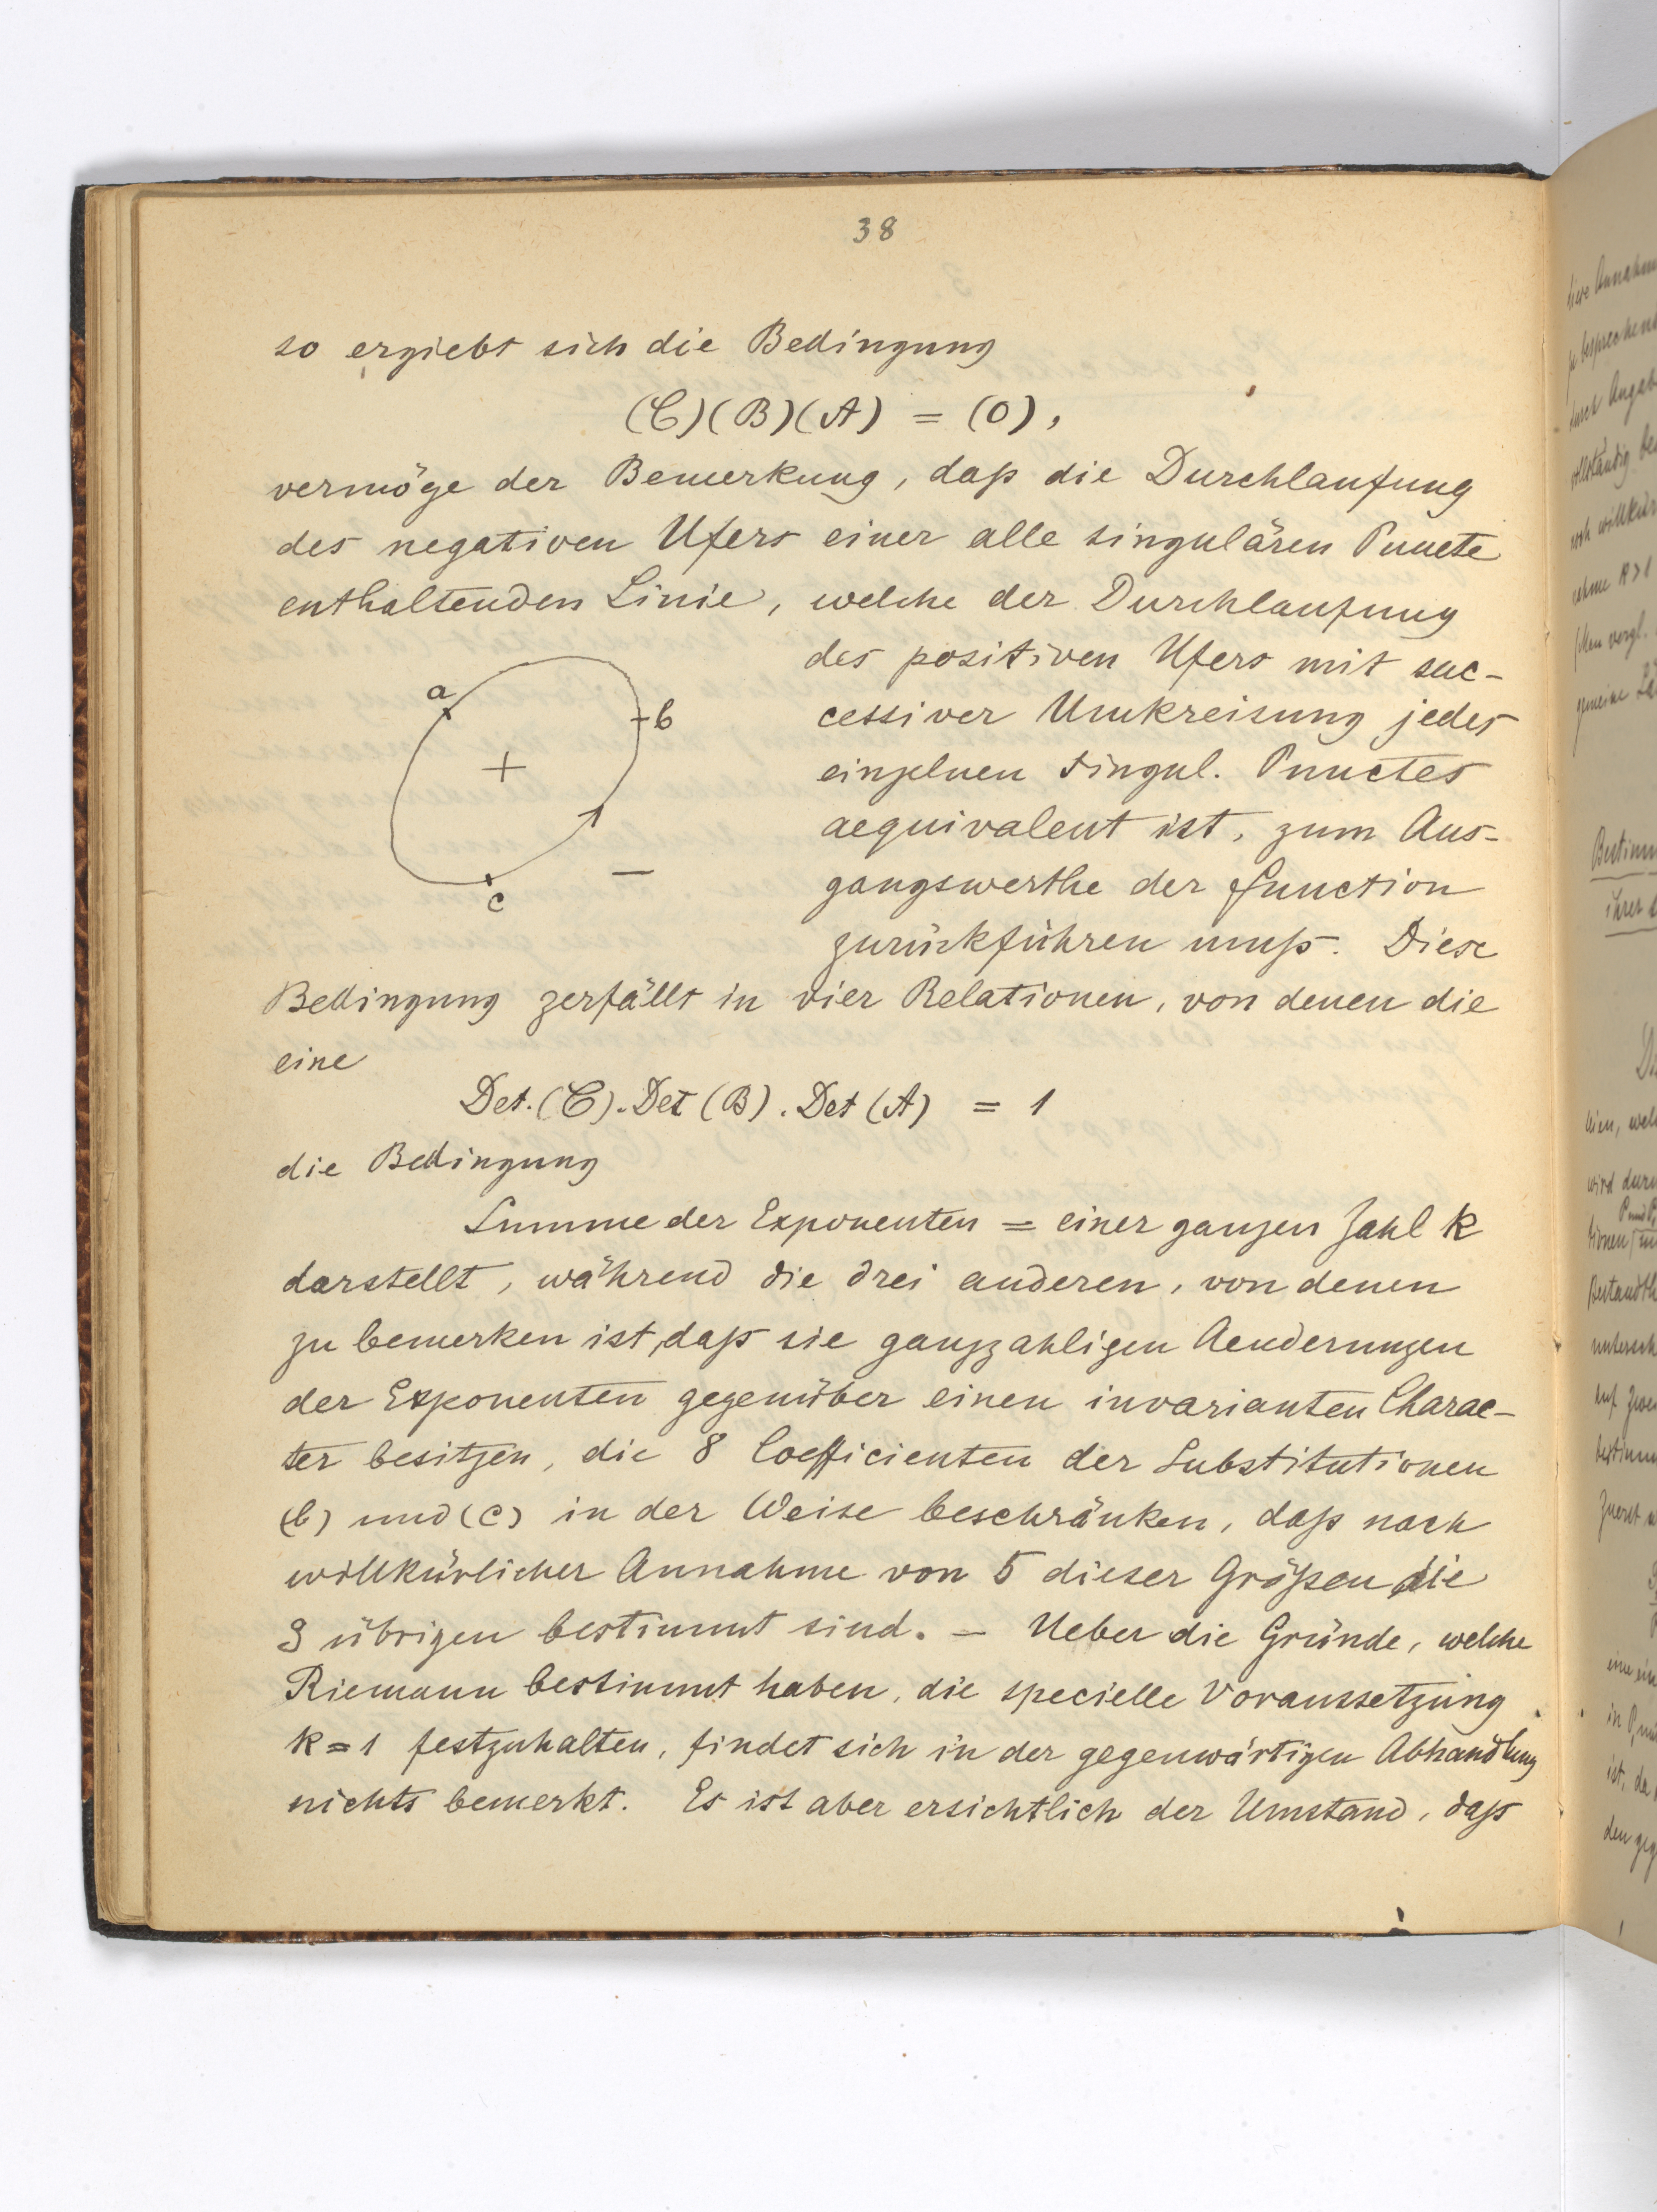 38
so ergiebt sich die Bedingung
(C)(B)(A) = (0),
vermöge der Bemerkung, daß die Durchlaufung
des negativen Ufers einer alle singulären Puncte
enthaltenden Linie, welche der Durchlaufung
des positiven Ufers mit suc-
cessiver Umkreisung jedes
einzelnen singul. Punctes
aequivalent ist, zum Aus-
gangswerthe der Function
zurückführen muß. Diese
a
b
+
c
−
Bedingung zerfällt in vier Relationen, von denen die
eine
Det.(C).Det(B).Det(A) = 1
die Bedingung
Summe der Exponenten = einer ganzen Zahl k
darstellt, während die drei anderen, von denen
zu bemerken ist, daß sie ganzzahligen Aenderungen
der Exponenten gegenüber einen invarianten Charac-
ter besitzen, die 8 Coefficienten der Substitutionen
(b) und (c) in der Weise beschränken, daß nach
willkürlicher Annahme von 5 dieser Größen die
3 übrigen bestimmt sind. — Ueber die Gründe, welche
Riemann bestimmt haben, die specielle Voraussetzung
k=1 festzuhalten, findet sich in der gegenwärtigen Abhandlung
nichts bemerkt. Es ist aber ersichtlich der Umstand, daß